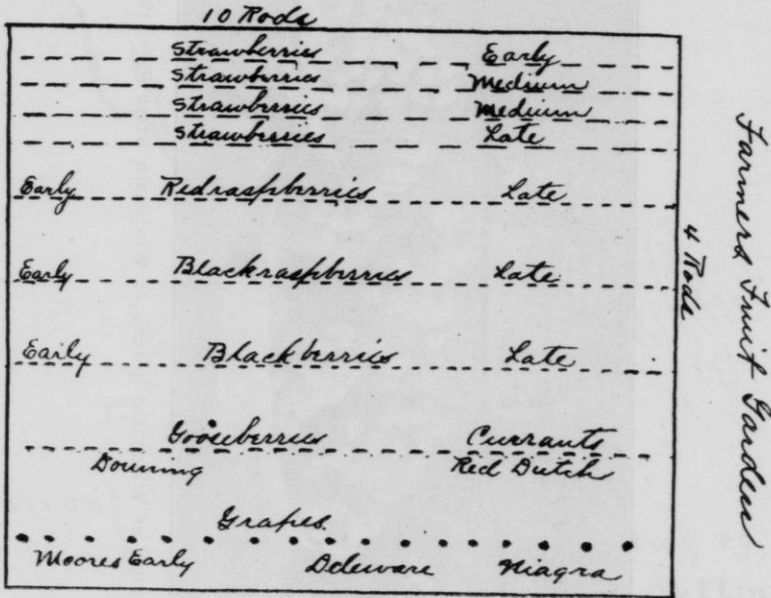 10 Rods
Strawberries Early
Strawberries Medium
Strawberries Medium
Strawberries Late
Early Redraspberries Late
Early Blackraspberries Late
Early Blackberries Late
Gooseberries Currants
Downing Red Dutch
Grapes.
Moores Early Deleware Niagra
4 Rods
Farmers Fruit Garden